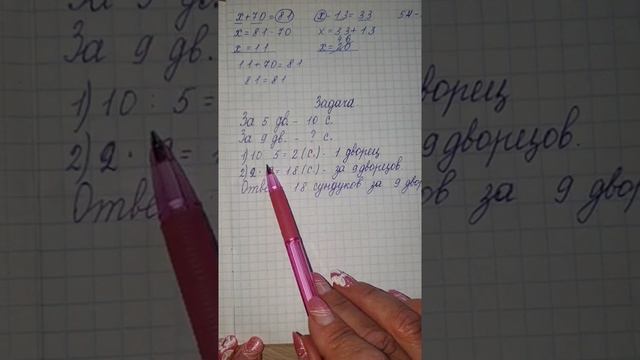 x + 70 = 81
x = 81 - 70
x = 11
11 + 70 = 81
81 = 81
x - 13 = 33
x = 33 + 13
46
x = 20
54 -
Задача
За 5 дв. - 10 с.
За 9 дв. - ? с.
1) 10 : 5 = 2 (с.) - 1 дворец
2) 2 · = 18 (с.) - за 9 дворцов.
18 сундуков за 9
За 9 дв.
1) 10 : 5 =
2) 2 · =
дворец
9 дворцов.
за 9